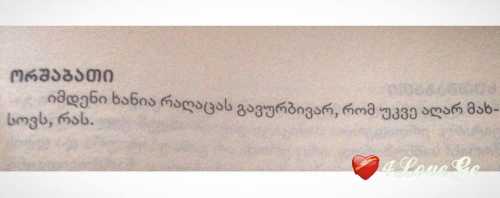 ორშაბათი
იმდენი ხანია რაღაცას გავურბივარ, რომ უკვე აღარ მახ-
სოვს, რას.
4LoveGe